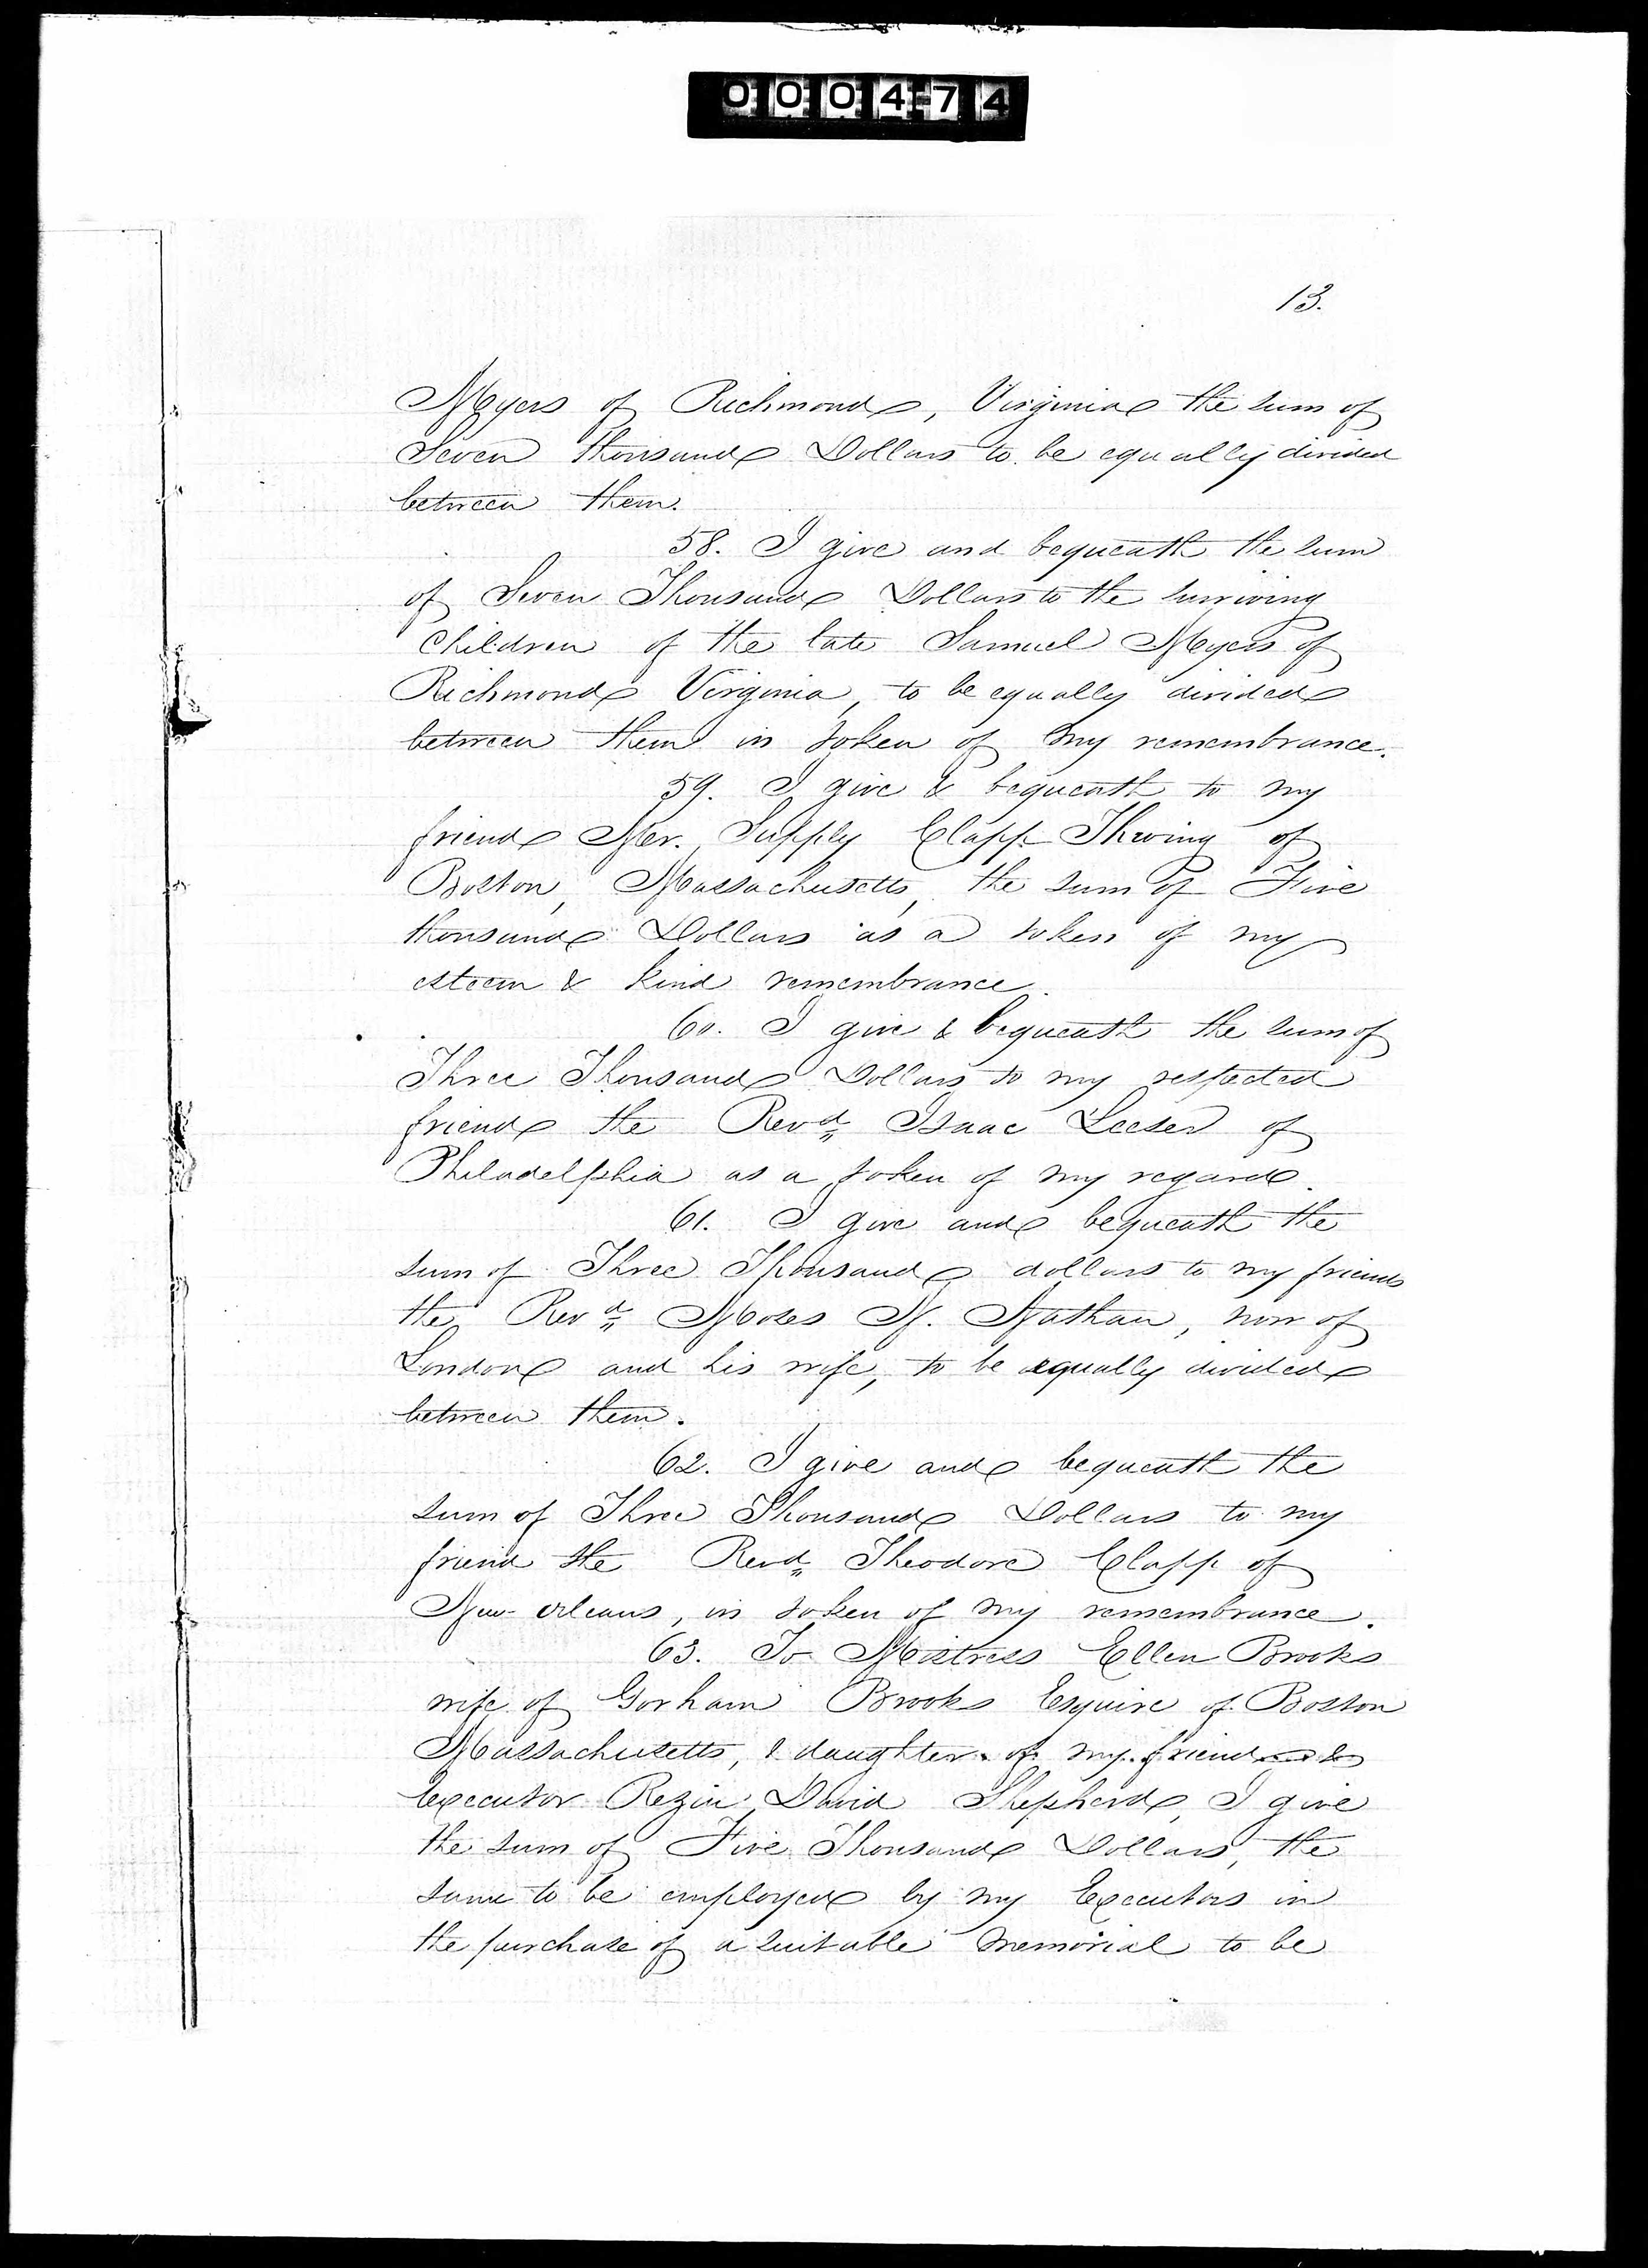 000474
13.
Myers of Richmond, Virginia the sum of
Seven thousand Dollars to be equally divided
between them.
58. I give and bequeath the sum
of Seven Thousand Dollars to the surviving
Children of the late Samuel Myers of
Richmond Virginia, to be equally divided
between them in token of my remembrance.
59. I give & bequeath to my
friend Mr. Supply Clapp Thwing of
Boston, Massachusetts, the sum of Five
thousand Dollars as a token of my
esteem & kind remembrance.
60. I give & bequeath the sum of
Three Thousand Dollars to my respected
friend the Revd. Isaac Leeser of
Philadelphia as a token of my regard.
61. I give and bequeath the
sum of Three Thousand dollars to my friend
the Revd. Moses N. Nathan, now of
London and his wife, to be equally divided
between them.
62. I give and bequeath the
sum of Three Thousand Dollars to my
friend the Revd. Theodore Clapp of
New Orleans, in token of my remembrance.
63. To Mistress Ellen Brooks
wife of Gorham Brooks Esquire of Boston
Massachusetts, & daughter of my friend &
Executor Rezin David Shepherd, I give
the sum of Five Thousand Dollars, the
same to be employed by my Executors in
the purchase of a suitable memorial to be